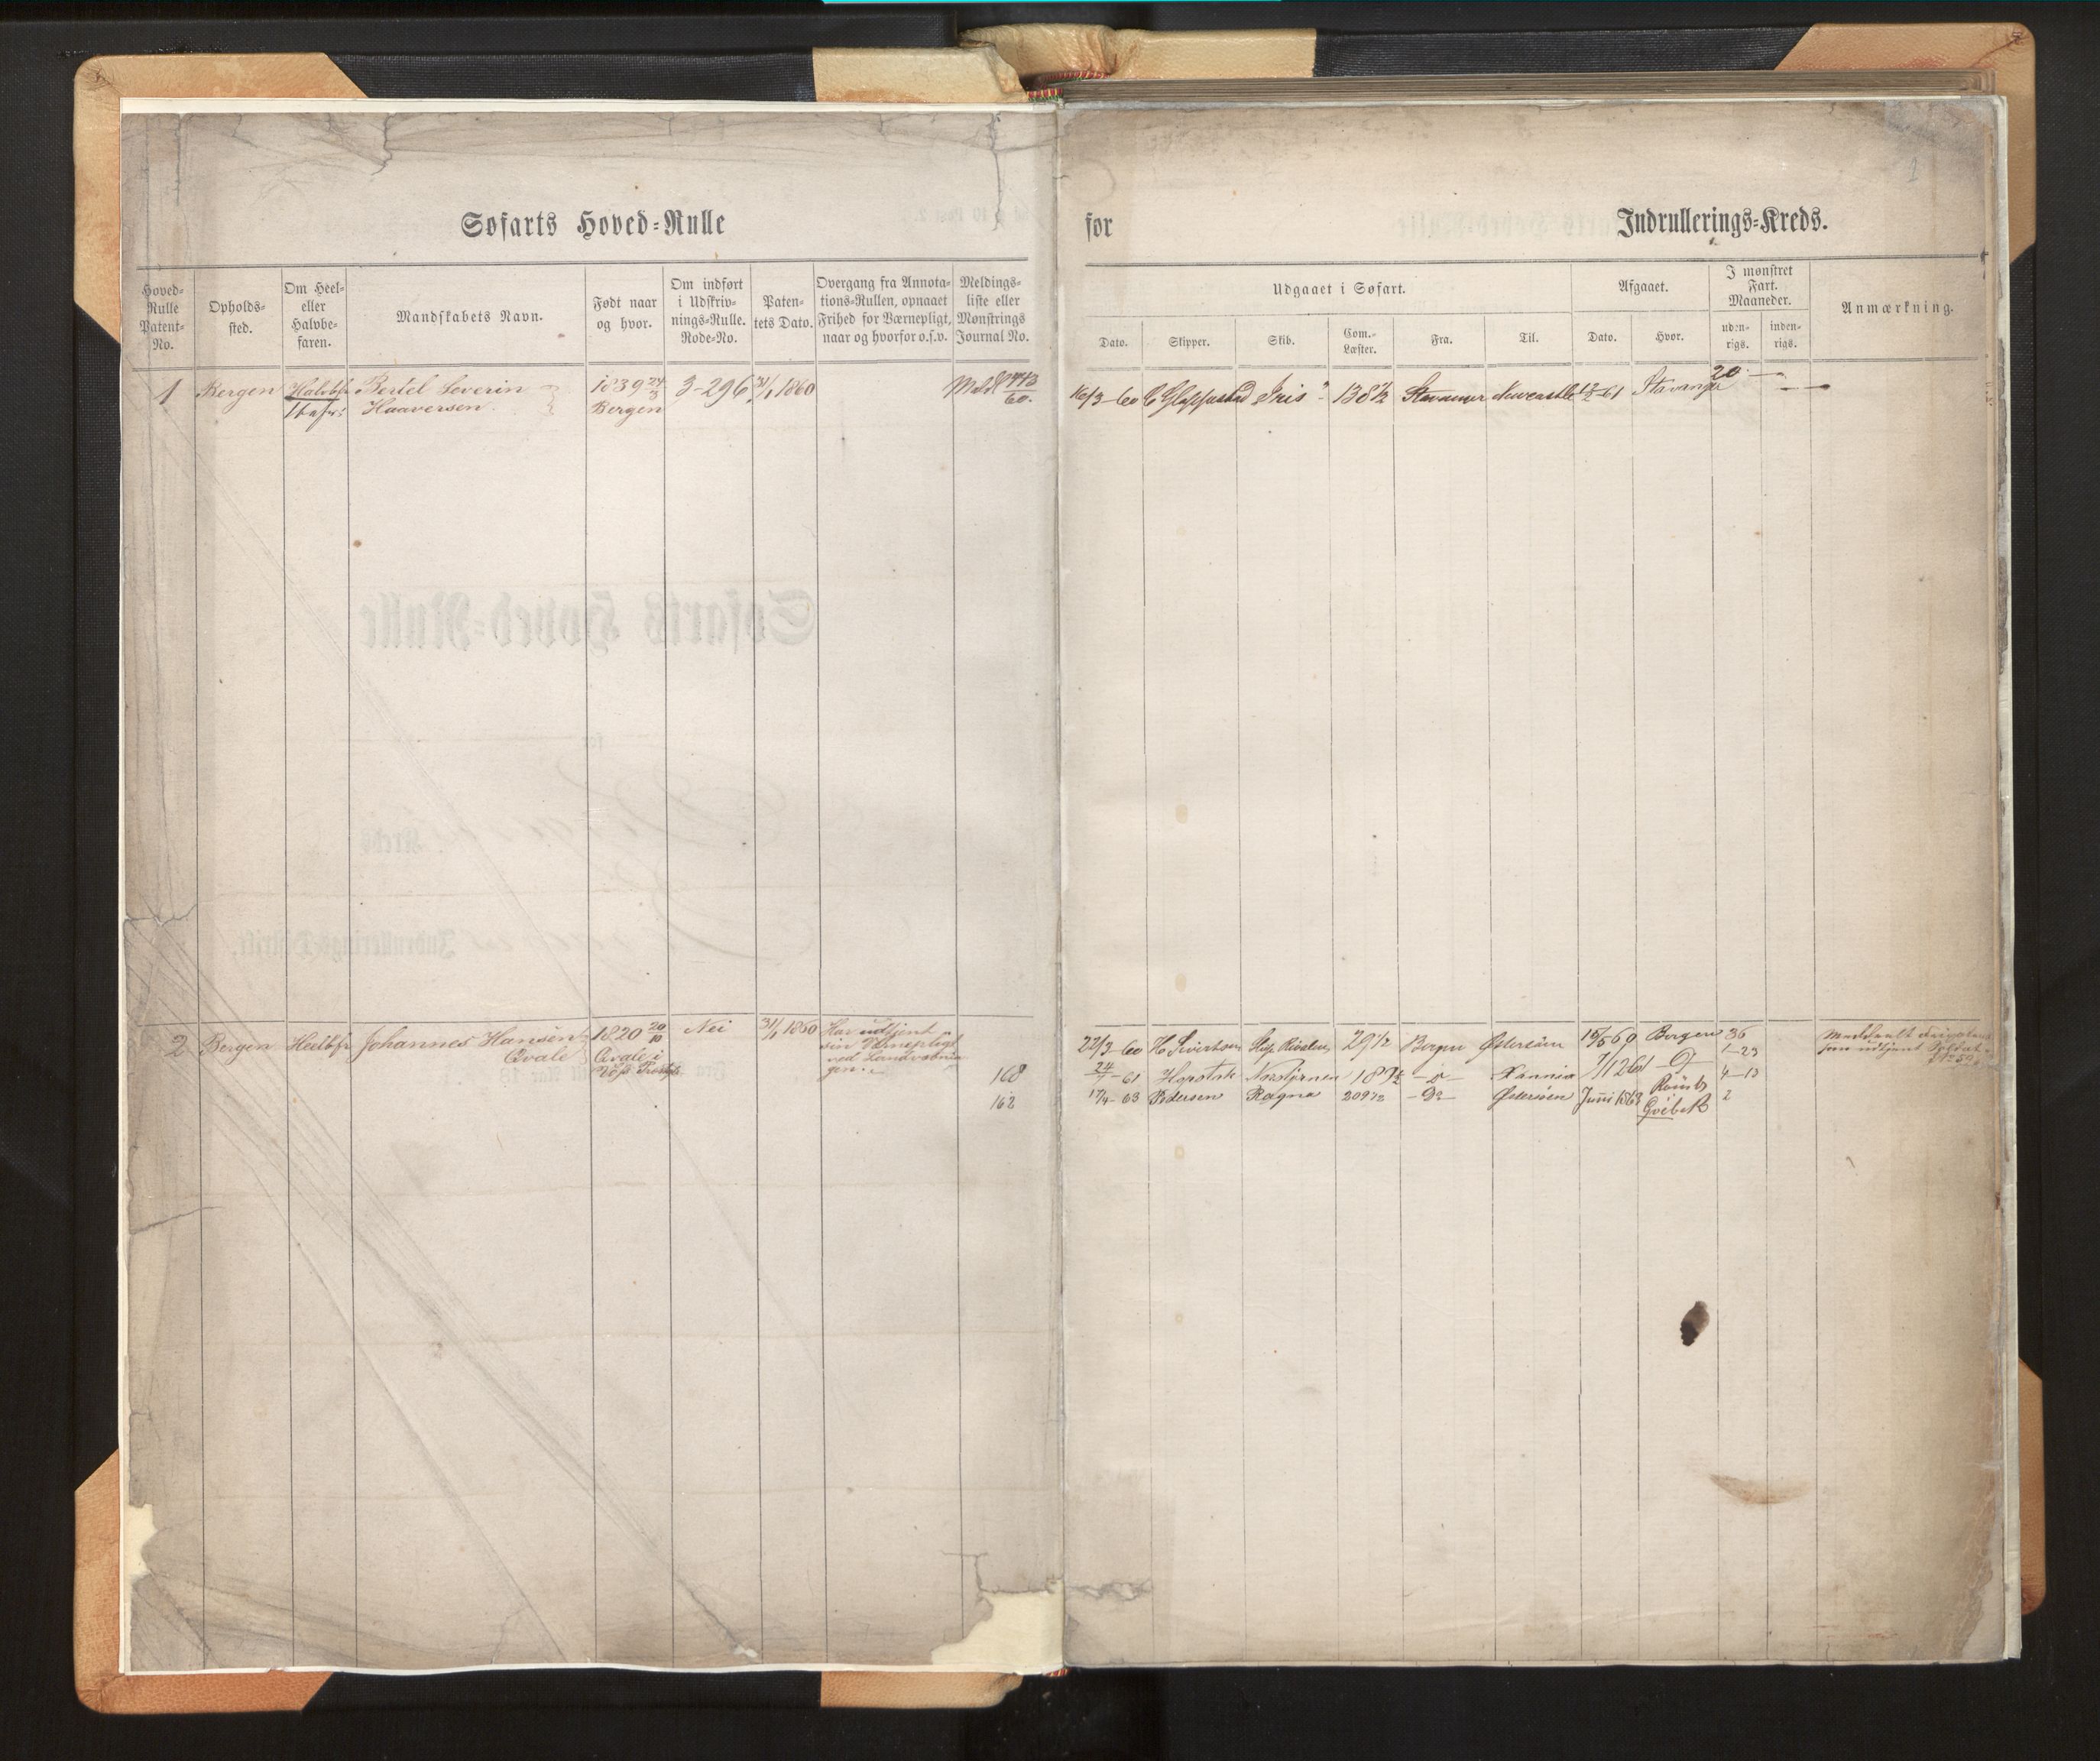 1
Søfarts Hoved-Rulle
for
Indrullerings-Kreds.
Hoved-Rulle Patent-No.
Opholds-sted.
Om Heel- eller Halvbe-faren.
Mandskabets Navn.
Født naar og hvor.
Om indført i Udskriv-nings-Rulle. Rode-No.
Paten-tets Dato.
Overgang fra Annota-tions-Rullen, opnaaet Frihed for Værnepligt, naar og hvorfor o.s.v.
Meldings-liste eller Mønstrings Journal No.
Udgaaet i Søfart.
Dato.
Skipper.
Skib.
Com.-Læster.
Fra.
Til.
Afgaaet.
Dato.
Hvor.
I mønstret Fart. Maaneder.
uden-rigs.
inden-rigs.
Anmærkning.
1 Bergen Halvbf Bertel Severin 1839 24/3 3-296 31/1 1860
Haaversen Bergen 60.
16/3-60 Iris 138 1/2 Stavanger Newcastle Stavanger 20
2 Bergen Heelbf Johannes Hansen 1820 20/10 Nei 31/1 1860 Har udtjent
Qvale Qvale i sin Værnepligt
Voss ved Landvæbnin
gen.
22/3-60 H Sivertsen 29 1/2 Bergen Østersøen Bergen 36
1-23
168 24/7-61 189 1/2 4-13
162 17/4-63 Pedersen Ragna 209 1/2 Do Østersøen Juni 1863 2